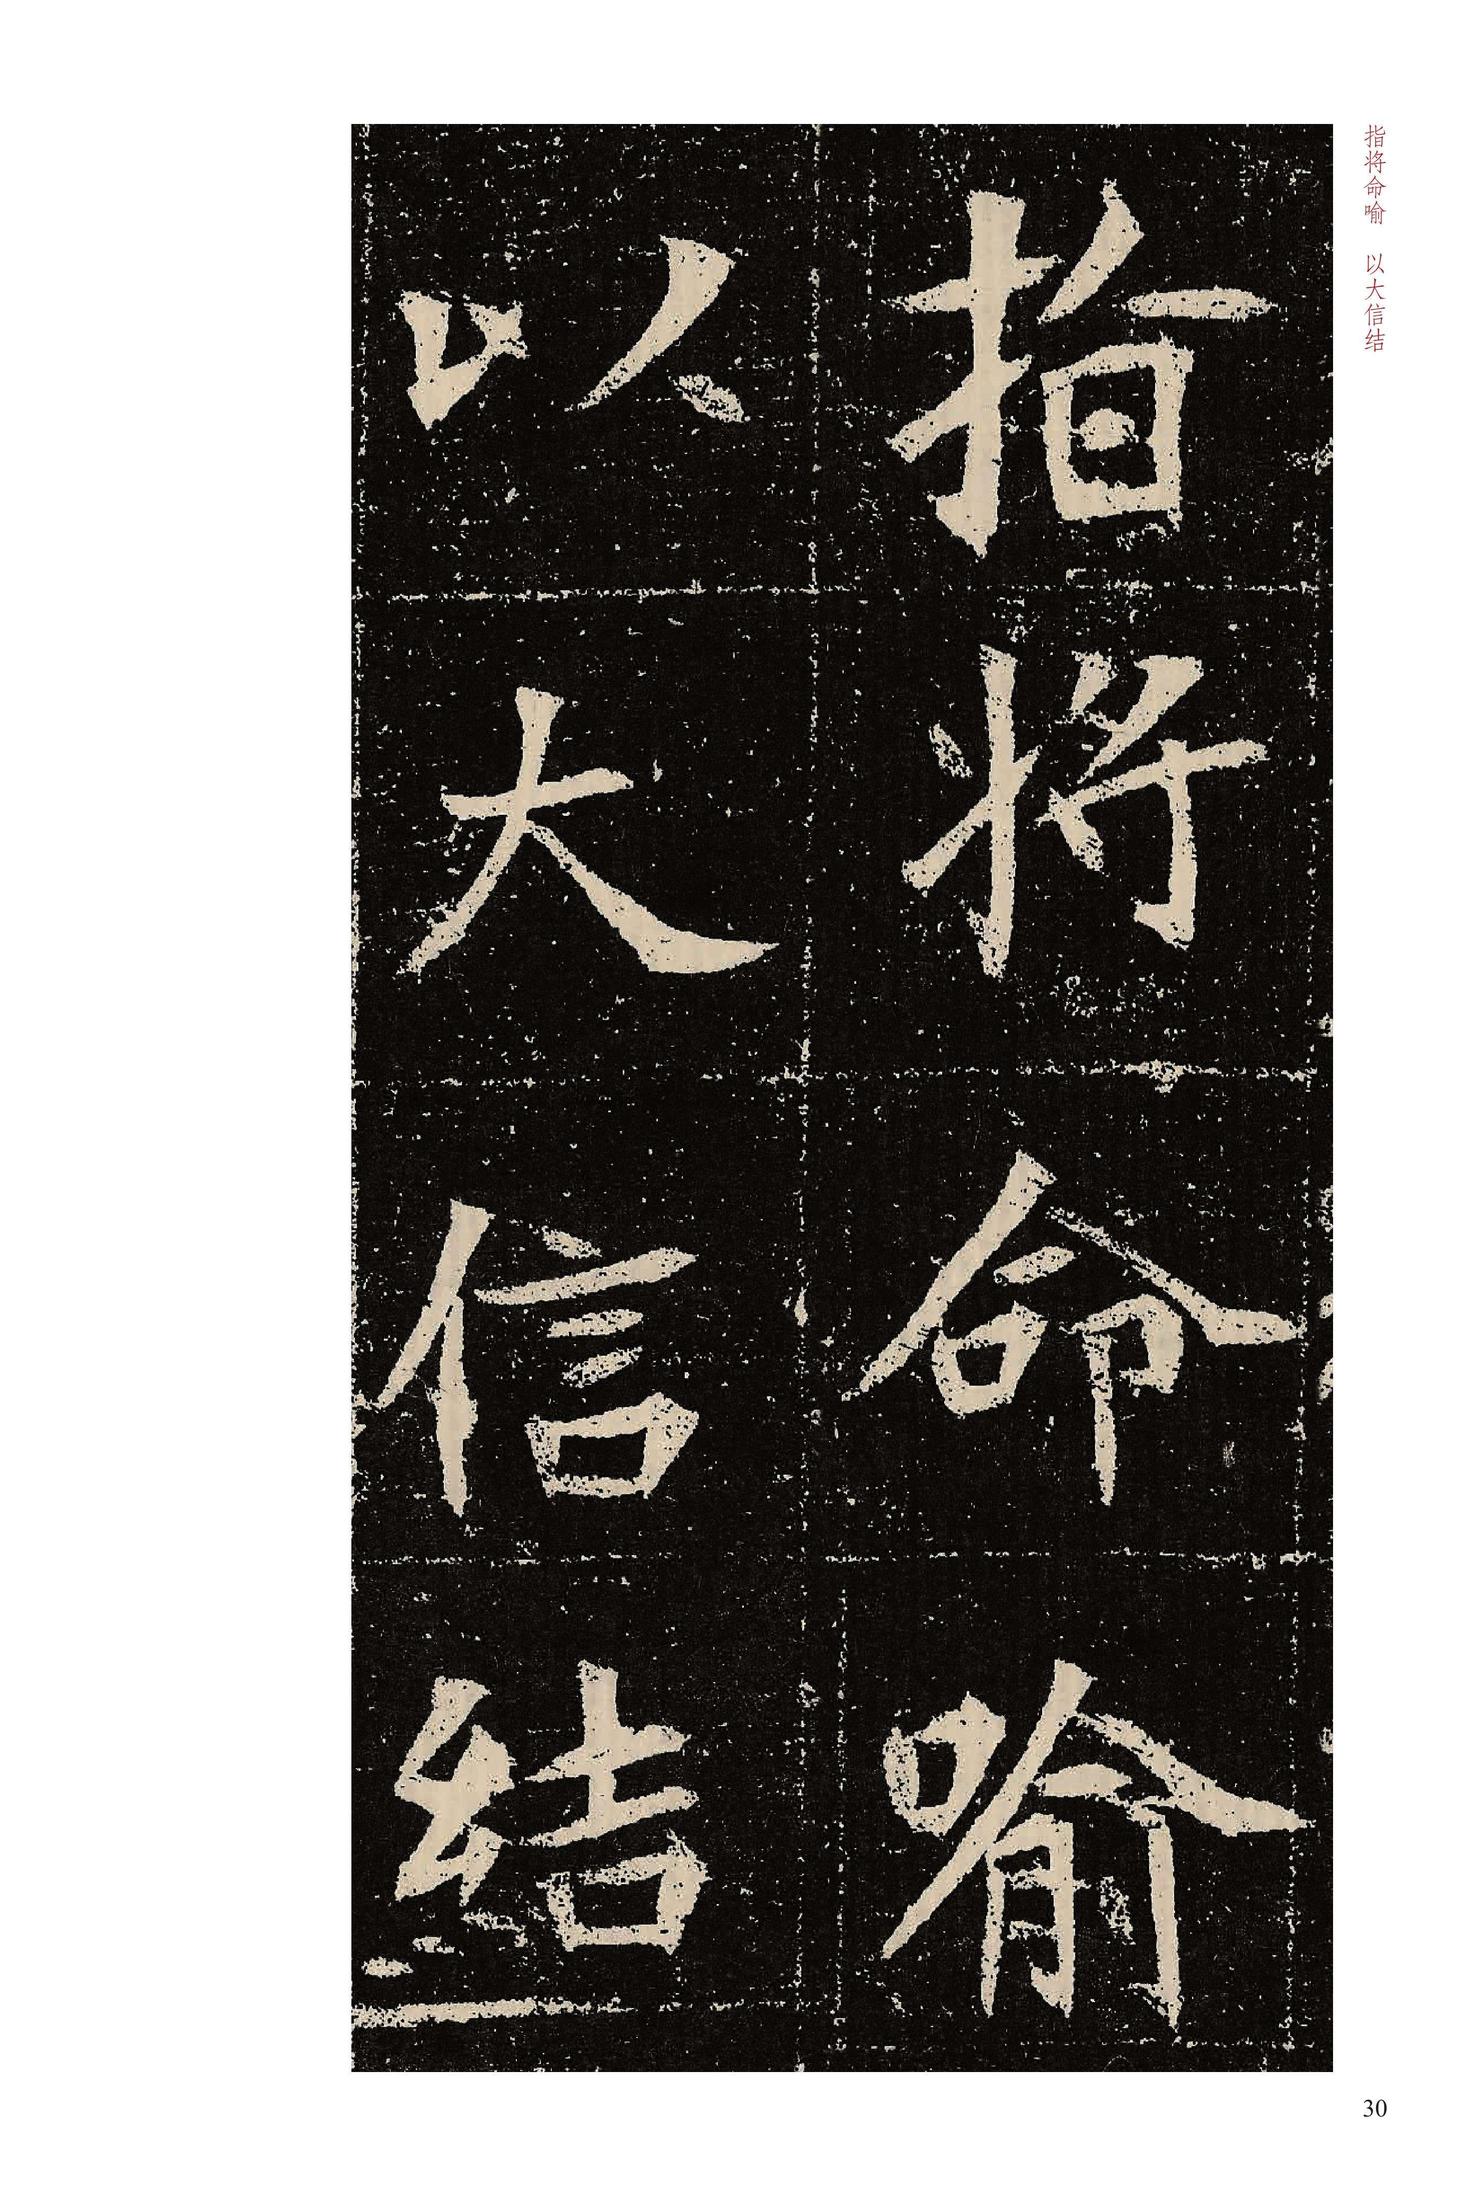 指将命喻
以大信结
指将命喻　以大信结
30